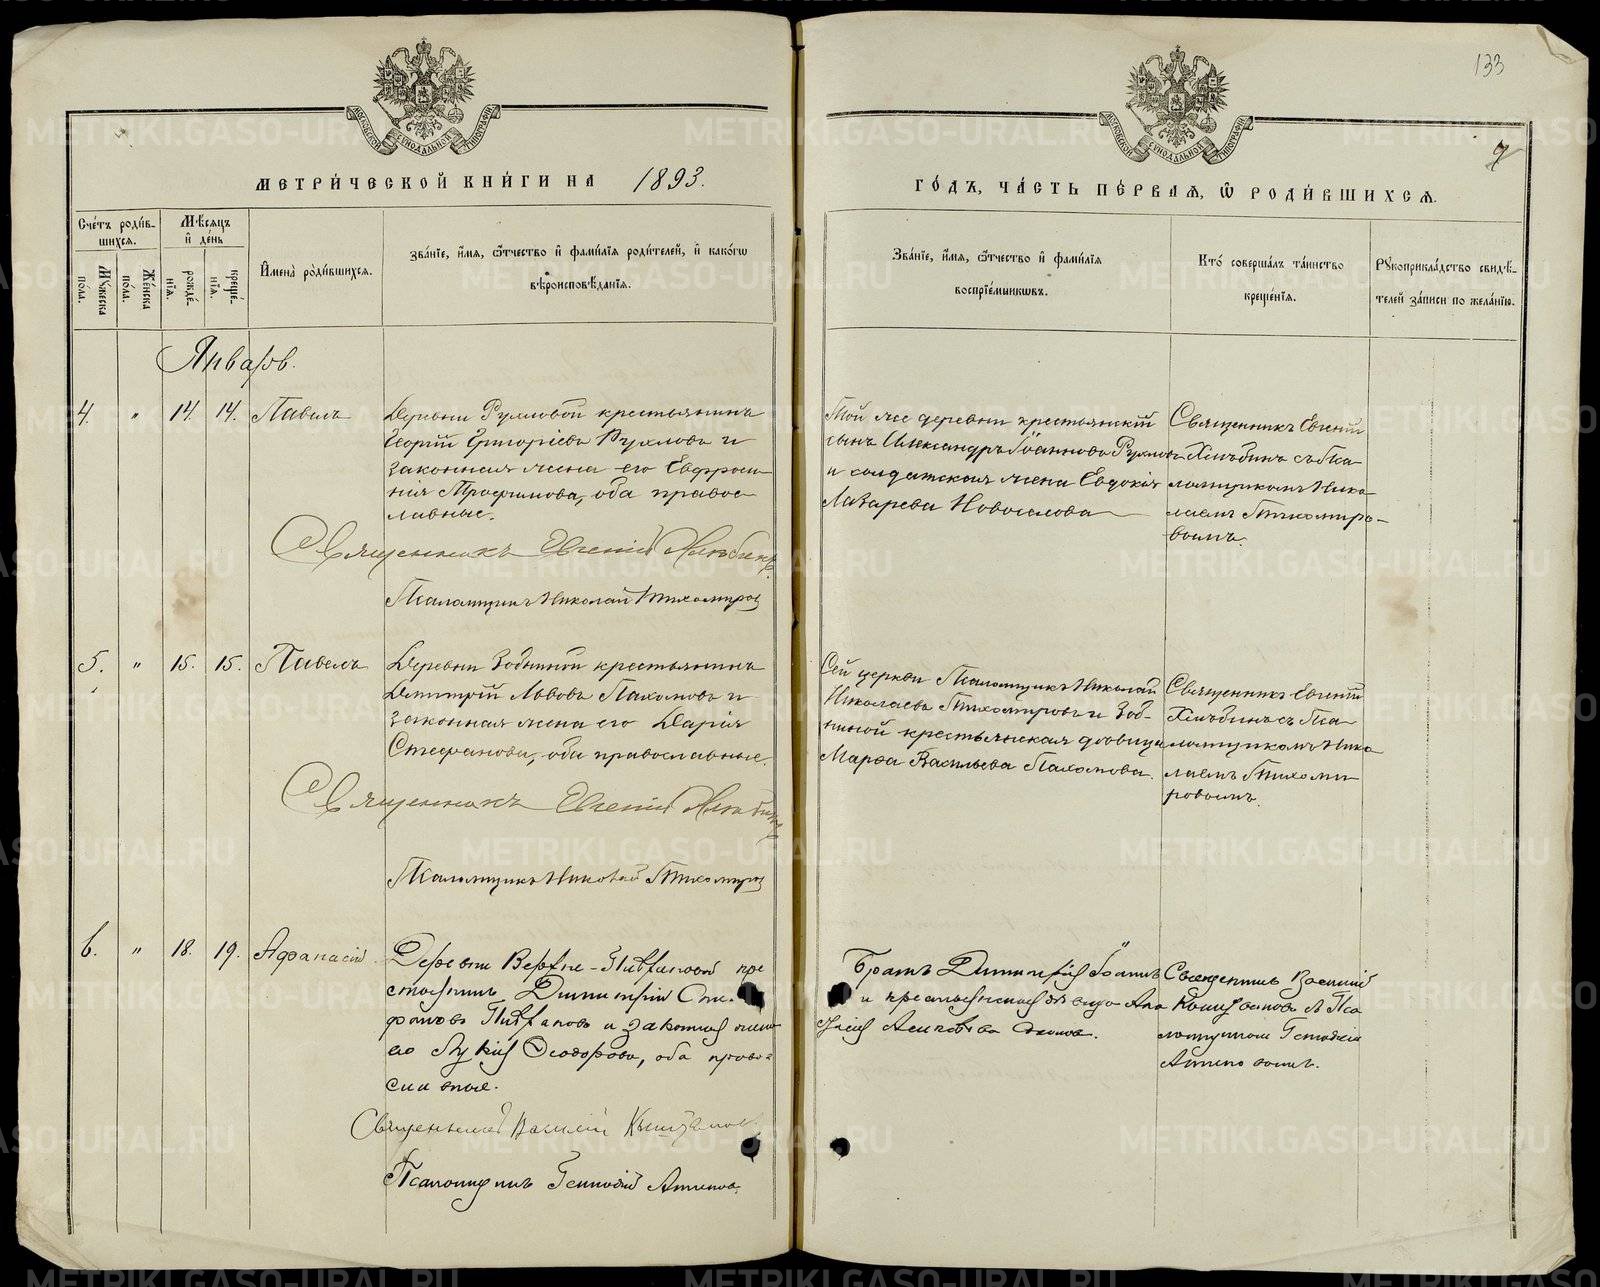 133
7
МЕТРИ́ЧЕСКОЙ КНИ́ГИ НА 1893.
ГО́ДЪ, ЧА́СТЬ ПЕ́РВАѦ, Ѽ РОДИ́ВШИХСѦ.
Сче́тъ роди́в-
шихся.
Мѣ́сяцъ
и де́нь
Му́жеска
по́ла.
Же́нска
по́ла.
рожде́-
нія.
креще́-
нія.
Имена̀ роди́вшихся.
Зва́ніе, и́мя, ѻ́тчество и фами́лія роди́телей, и како́гѡ
вѣроисповѣ́данія.
Зва́ніе, и́мя, ѻ́тчество и фами́лія
воспріе́мникѡвъ.
Кто̀ соверша́лъ та́инство
креще́нія.
Рꙋкоприкла́дство свидѣ́-
телей за́писи по жела́нію.
Январь.
4. " 14. 14. Павелъ
Деревни Рухловой крестьянинъ
Георгій Григоріевъ Рухловъ и
законная жена его Евфроси-
нія Трофимова, оба правос-
лавные.
Священникъ Евгеній Хлѣбинъ
Псаломщикъ Николай Тихомировъ
Той же деревни крестьянскій
сынъ Александръ Іоанновъ Рухловъ
и солдатская жена Евдокія
Лазарева Новоселова
Священникъ Евгеній
Хлѣбинъ съ Пса-
ломщикомъ Нико-
лаемъ Тихомиро-
вымъ.
5. " 15. 15. Павелъ
Деревни Зобниной крестьянинъ
Дмитрій Львовъ Пахомовъ и
законная жена его Дарія
Стефанова, оба православные.
Священникъ Евгеній Хлѣбинъ
Псаломщикъ Николай Тихомировъ
Сей церкви Псаломщикъ Николай
Николаевъ Тихомировъ и Зоб-
ниной крестьянская девица
Марѳа Васильева Пахомова.
Священникъ Евгеній
Хлѣбинъ съ Пса-
ломщикомъ Нико-
лаемъ Тихоми-
ровымъ.
6. " 18. 19. Афанасій
Деревни Верхне-
крестьянинъ Димитрій Сте-
фановъ и законная жена
его Лукія Ѳеодорова, оба право-
славные.
Священникъ Василій
Псаломщикъ Геннадій
Братъ Димитрія Іоаннъ
и крестьянская девица
Священникъ Василій
Пса-
ломщикомъ Геннадіемъ